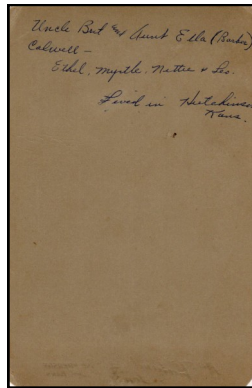 Uncle Bert and Aunt Ella (Rankin)
Colwell -
Ethel, Myrtle, Nettie & Leo.
Lived in Hutchinson
Kans.